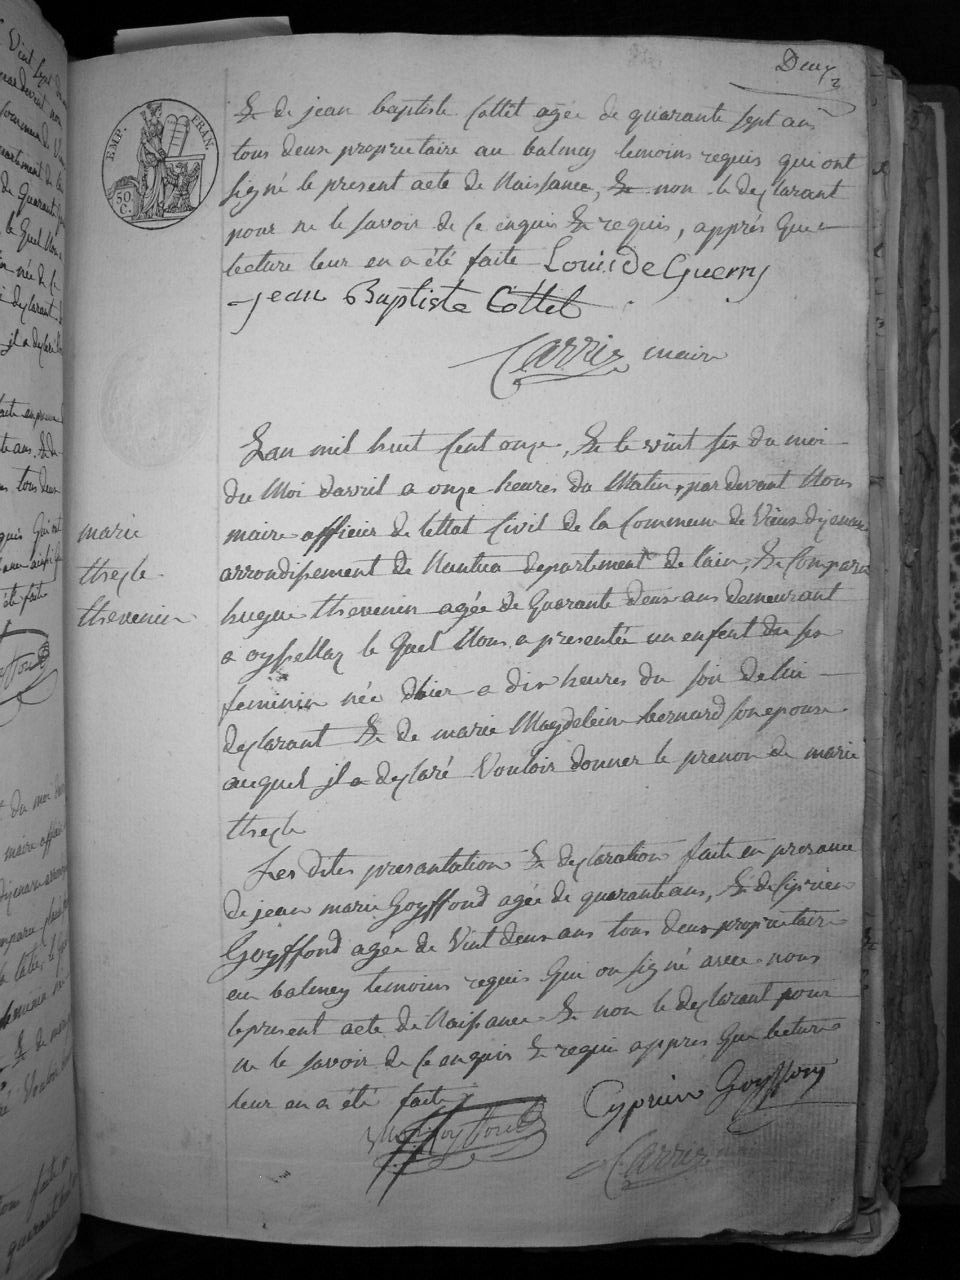 Deux
2
EMP. FRAN.
50. C.
& de jean baptiste Cottet agée de quarante sept ans
tous deux proprietaire au balmey temoins requis qui ont
signé le present acte de Naissance, & non le declarant
pour ne le savoir de ce enquis & requis, apprés que
lecture leur en a été faite Louis De Guerry
jean Baptiste Cottet
Carrier maire
Lan mil huit Cent onze, & le vint six du moi
du Moi davril a onze heures du Matin, par devant Nous
maire officier de lettat Civil de la Commune de Vieux dizenave
arrondissement de Nantua departement de lain, & Compara
hugue thevenin agée de Quarante deux ans demeurant
a oyssellaz le quel Nous a presentée un enfent du sex
feminin née dhier a dix heures du soir de lui
declarant & de marie Magdeleine bernard son epouse
auquel il a declaré Vouloir donner le prenon de marie
thecle
marie
thecle
thevenin
Les dites presantation & declaration faite en presance
de jean marie Goyffond agée de quarante ans, & de Siprien
Goyffond agée de Vint deux ans tous deux proprietaire
au balmey temoins requis qui on signé avec nous
le present acte de Naissance & non le declarant pour
ne le savoir de ce anquis & requi appres que lecture
leur en a été faite
Cyprien Goyffon
Carrier